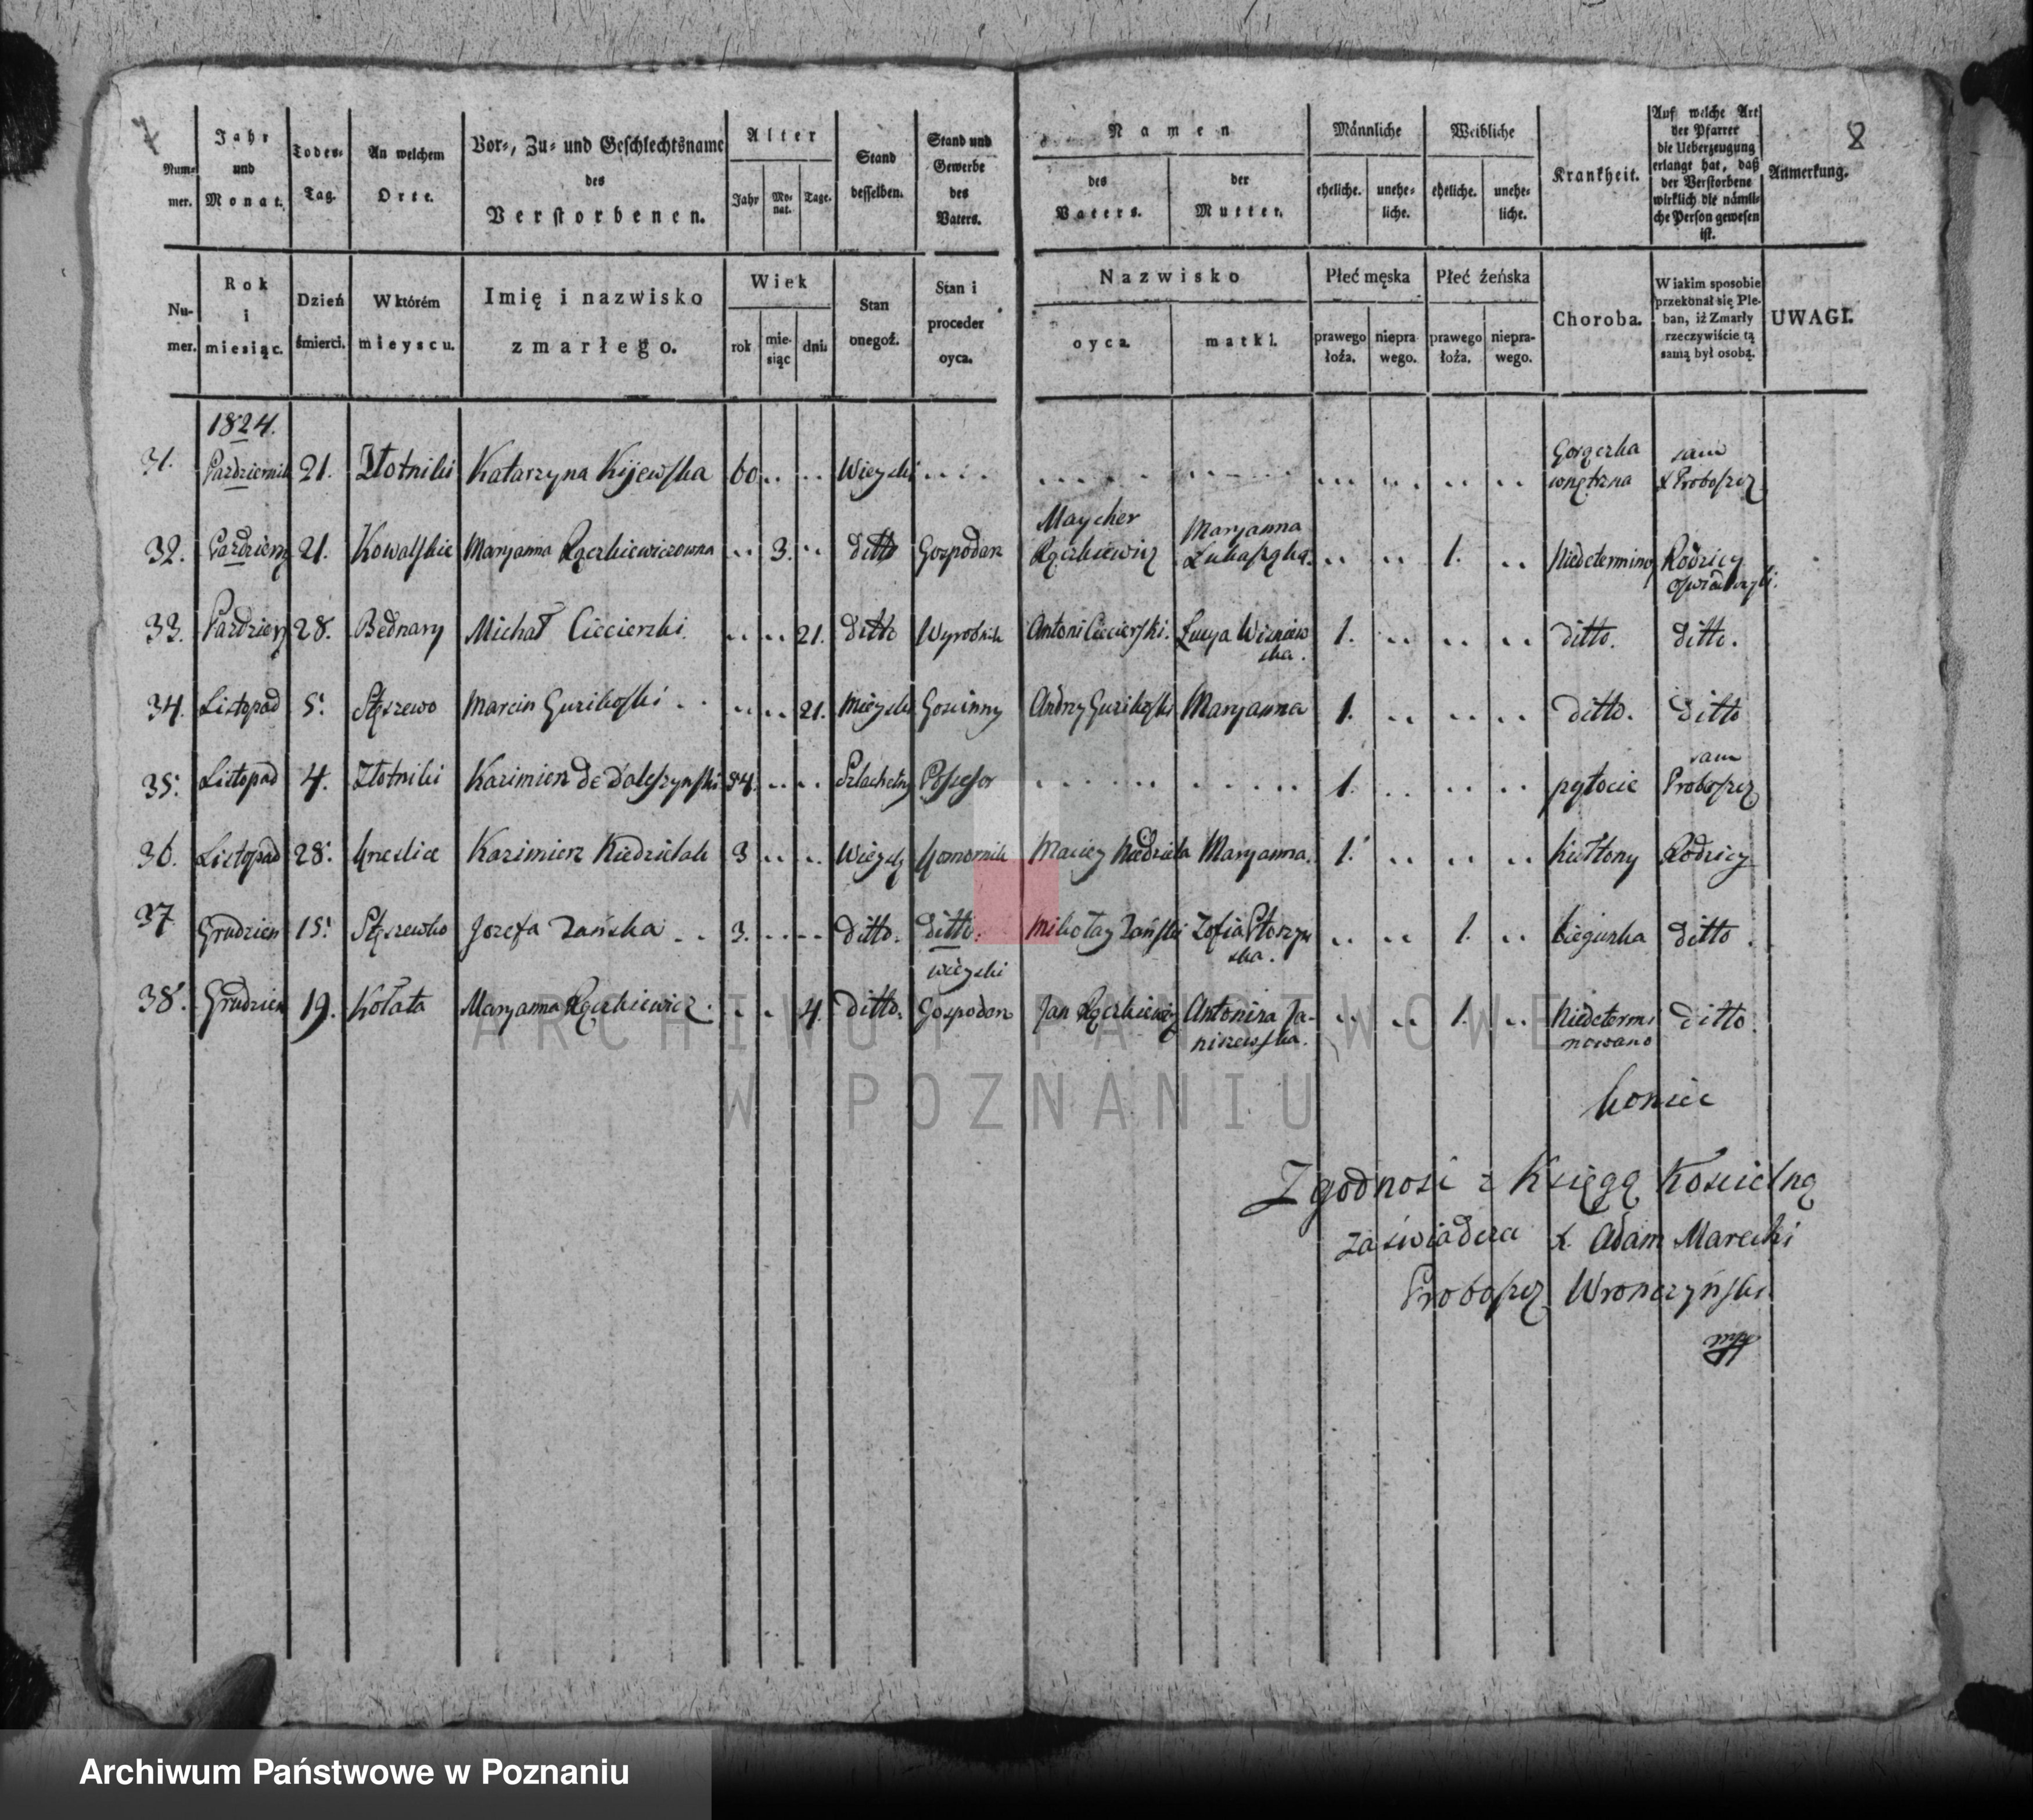 7
8
Num=
mer.
Jahr
und
Monat.
Todes=
Tag.
An welchem
Orte.
Vor=, Zu= und Geschlechtsname
des
Verstorbenen.
Alter
Jahr
Mo=
nat.
Tage.
Stand
desselben.
Stand und
Gewerbe
des
Vaters.
Namen
des
Vaters.
der
Mutter.
Männliche
eheliche.
unehe=
liche.
Weibliche
eheliche.
unehe=
liche.
Krankheit.
Auf welche Art
der Pfarrer
die Ueberzeugung
erlangt hat, daß
der Verstorbene
wirklich die nämli=
che Person gewesen
ist.
Anmerkung.
Nu-
mer.
Rok
i
miesiąc.
Dzień
śmierci.
W którém
mieyscu.
Imię i nazwisko
zmarłego.
Wiek
rok
mie-
siąc
dni.
Stan
onegoż.
Stan i
proceder
oyca.
Nazwisko
oyca.
matki.
Płeć męska
prawego
łoża.
niepra
wego.
Płeć żeńska
prawego
łoża.
niepra-
wego.
Choroba.
W iakim sposobie
przekonał się Ple-
ban, iż Zmarły
rzeczywiście tą
samą był osobą.
UWAGI.
1824.
31. Pazdziernik 21. Złotniki Katarzyna Kijewska 60 .. .. Wieyski .... Gorączka wnętrzna sam X Proboszcz
32. Pazdziern 21. Kowalskie Maryanna Rączkiewiczowna .. 3. .. ditto Gospodarz Maycher Rączkiewicz Maryanna .. .. 1. .. Niedetermino Rodzicy oswiadczyli.
33. Pazdziern 28. Bednary Michał Ciecierski .. .. 21. ditto Wyrobnik Antoni Ciecierski. Lucya Wiśniewska. 1. .. .. .. ditto. ditto.
34. Listopad 5. Stęszewo Marcin .. .. 21. Mieyski Goscinny Andrzy Maryanna 1. .. .. .. ditto. ditto
35. Listopad 4. Złotniki Kazimierz de 84. .. .. Szlachetny Possesor ..... ..... 1. .. .. .. sam Proboszcz
36. Listopad 28. Gneslice Kazimierz Niedzielak 3 .. .. Wieysk Komornik Maciey Niedziela Maryanna. 1. .. .. .. Rodzicy
37 Grudzien 15. Stęszewko Jozefa Zańska .. 3. .. .. ditto. ditto. Mikołay Zański Zofia .. .. 1. .. biegunka ditto.
38. Grudzien 19. Kołata Maryanna Rączkiewicz. .. .. 4. ditto. wieyski Gospodarz Jan Rączkiewicz Antonina Janiszewska. .. .. 1. .. Niedetermi nowano ditto.
koniec
Zgodnosi z Księgą Koscielną
zaswiadcza X. Adam Marecki
Proboszcz Wronczyński
mp
ARCHIWUM PAŃSTWOWE
W POZNANIU
Archiwum Państwowe w Poznaniu